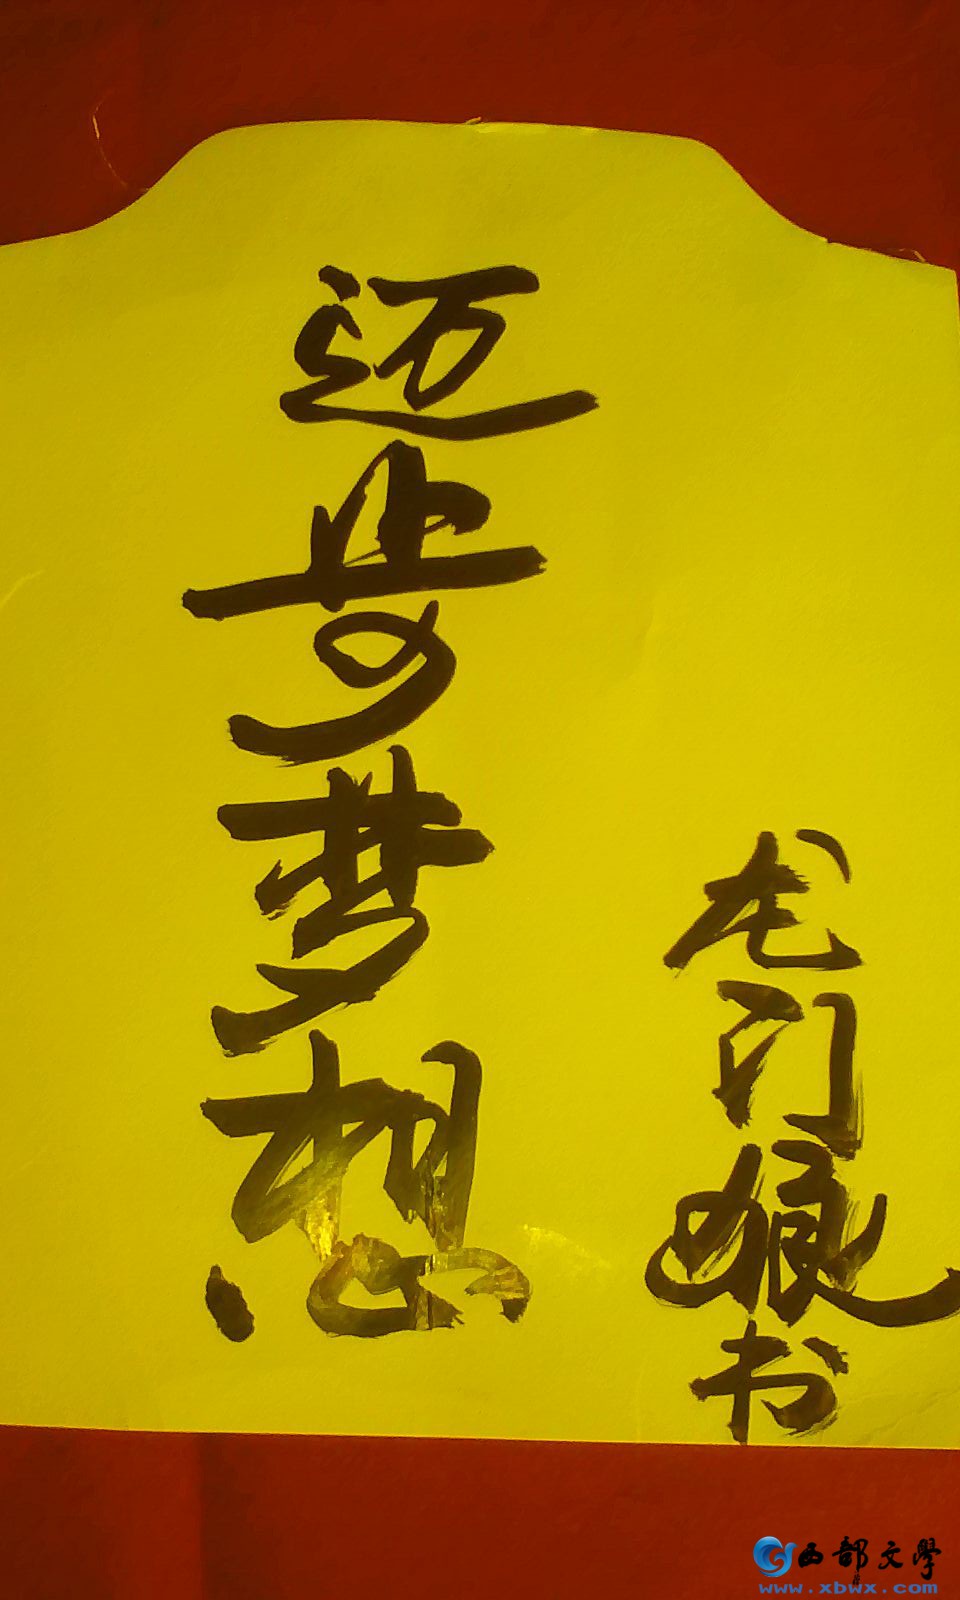 迈步梦想
龙门娘书
西部文學
www.xbwx.com